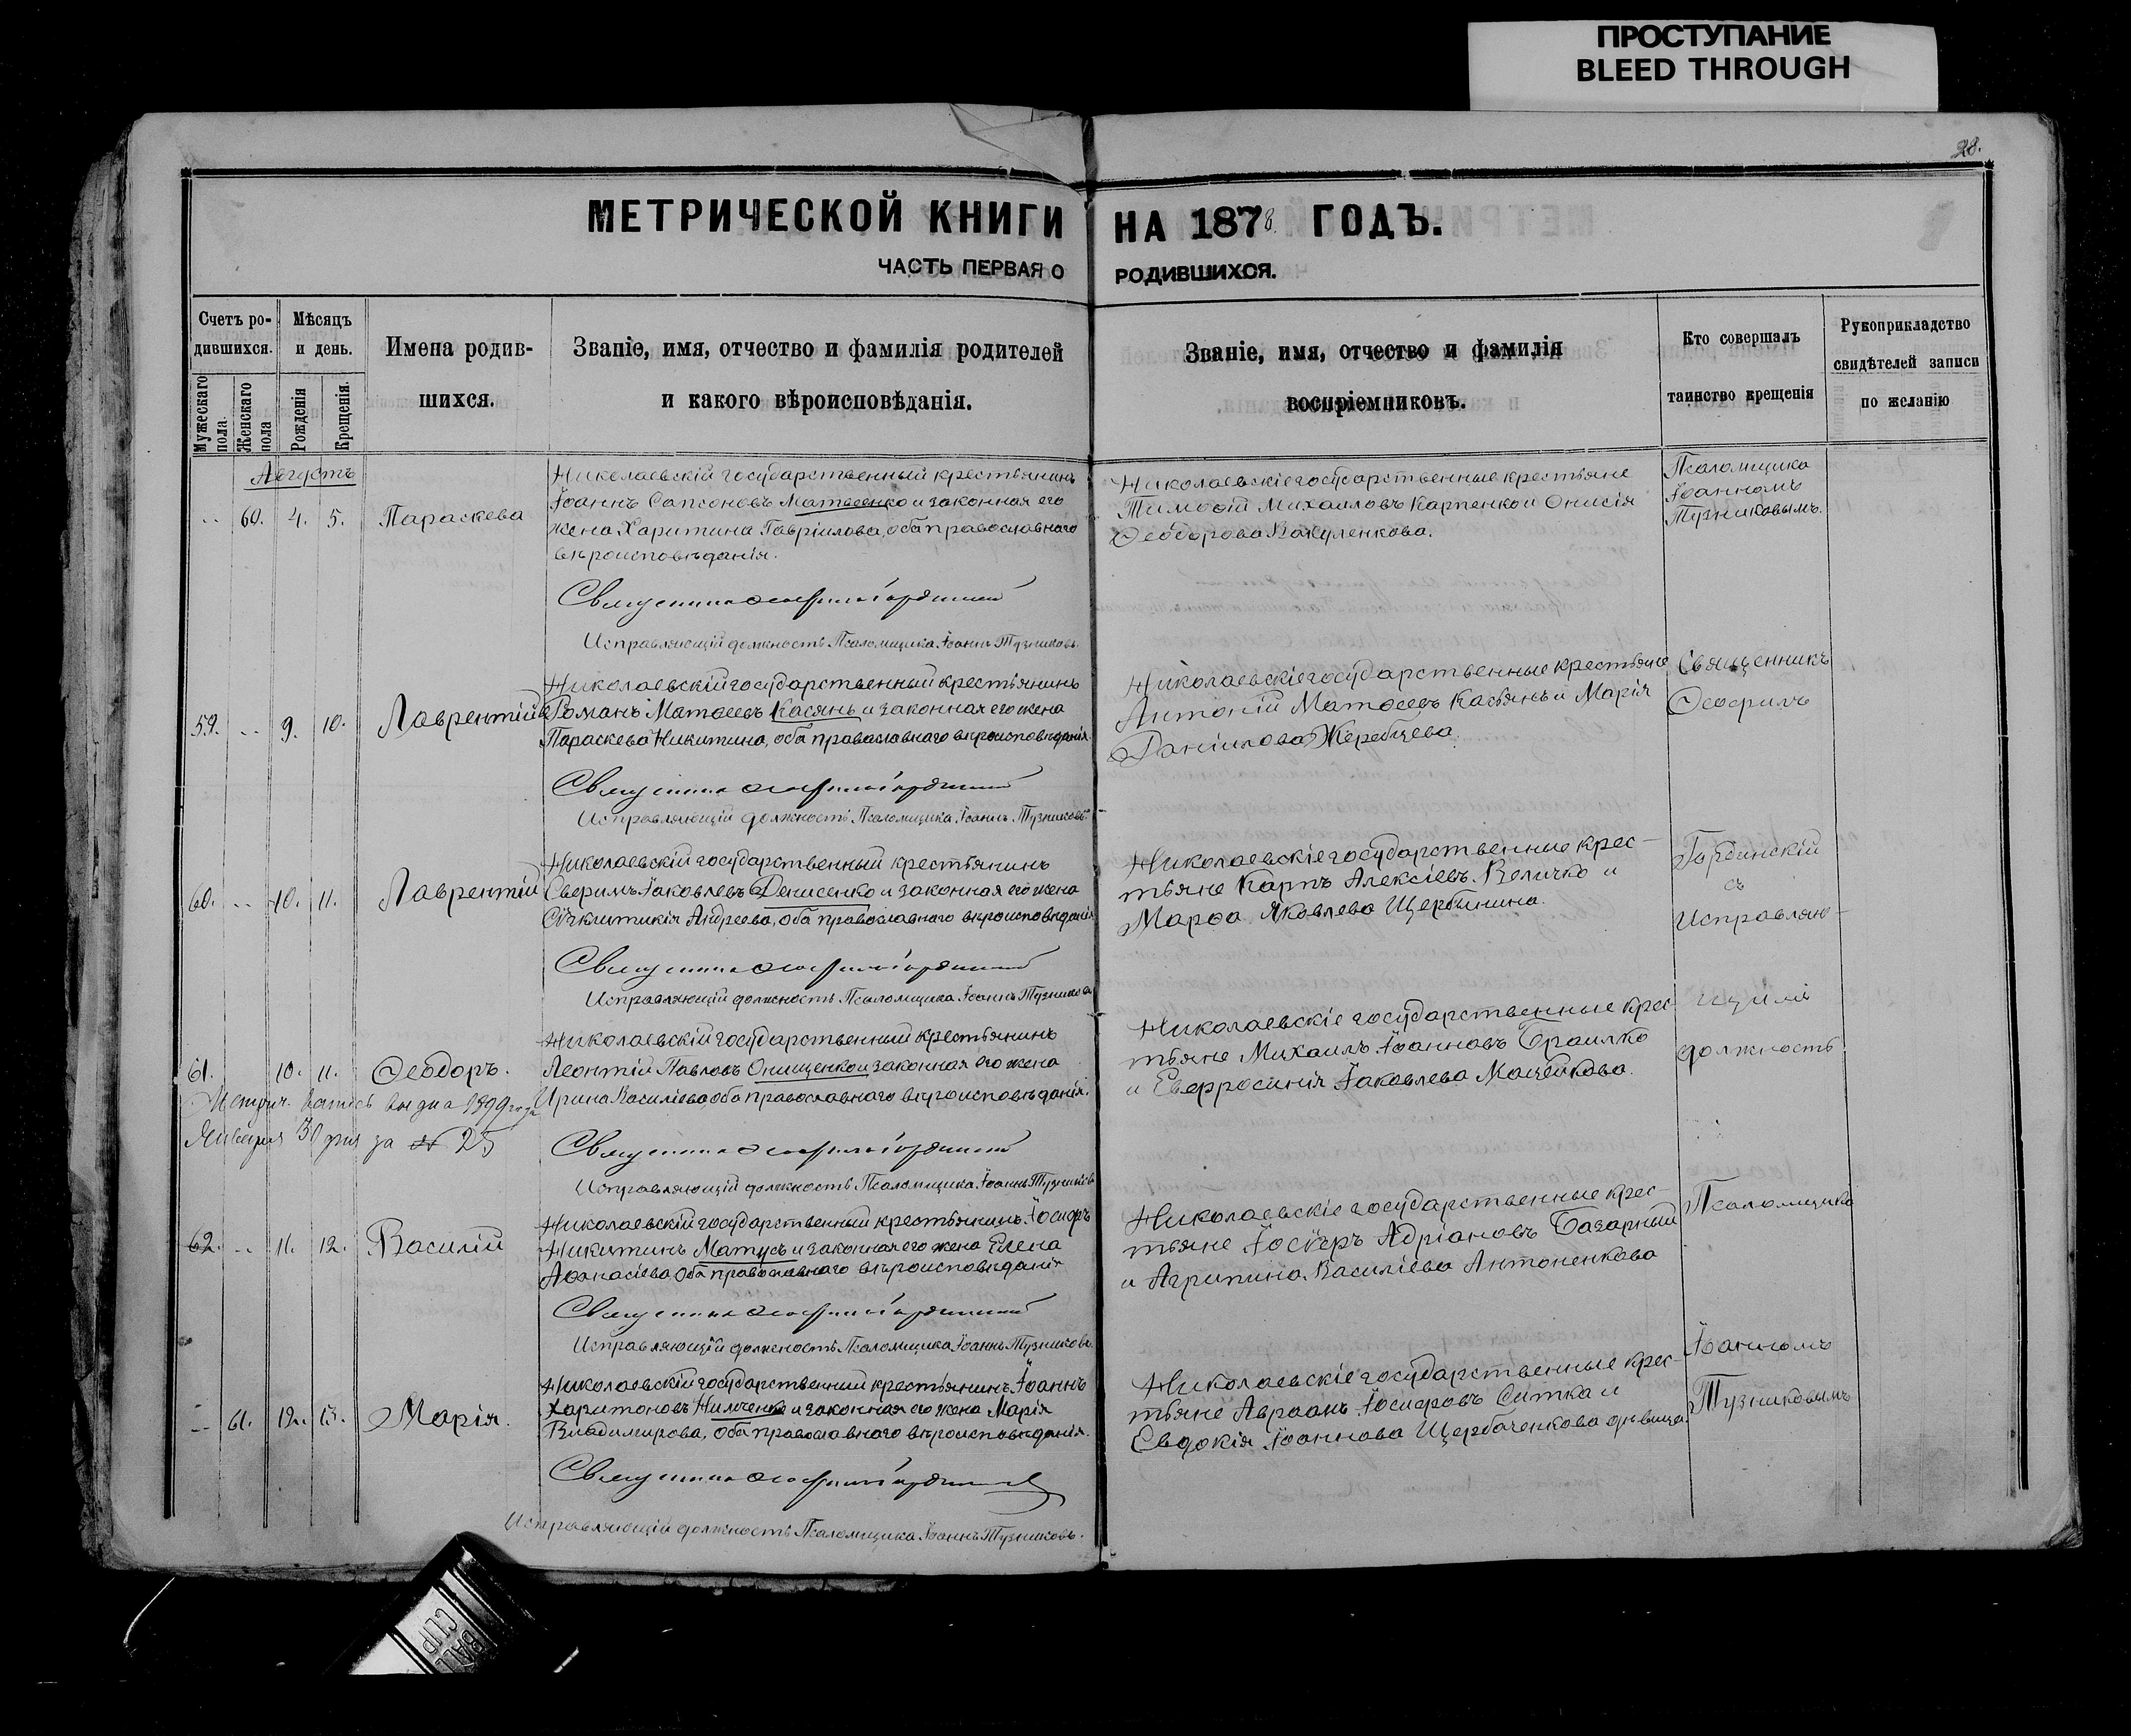 ПРОСТУПАНИЕ
BLEED THROUGH
28.
МЕТРИЧЕСКОЙ КНИГИ НА 1878. ГОДЪ.
ЧАСТЬ ПЕРВАЯ О РОДИВШИХСЯ.
Счетъ ро-
дившихся.
Мужескаго
пола.
Женскаго
пола
Мѣсяцъ
и день.
Рожденія
Крещенія.
Имена родив-
шихся.
Званіе, имя, отчество и фамилія родителей
и какого вѣроисповѣданія.
Званіе, имя, отчество и фамилія
воспріемниковъ.
Кто совершалъ
таинство крещенія
Рукоприкладство
свидѣтелей записи
по желанію
Августъ
60. 4. 5. Параскева
Николаевскій государственный крестьянинъ
Іоаннъ Сапсоновъ Матвеенко и законная его
жена Харитина Гавріилова, оба православнаго
вѣроисповѣданія.
Николаевскіе государственные крестьяне
Тимоѳій Михаиловъ Карпенко и Онисія
Ѳеодорова Вакуленкова.
Псаломщика
Іоанномъ
Тузниковымъ.
Исправляющій должность Псаломщика Іоаннъ Тузниковъ.
59. 9. 10. Лаврентій
Николаевскій государственный крестьянинъ
Романъ Матѳеевъ Касянъ и законная его жена
Параскева Никитина, оба православнаго вѣроисповѣданія.
Николаевскіе государственные крестьяне
Антоній Матѳеевъ Касьянъ и Марія
Даніилова Жеребцева.
Священникъ
Ѳеофилъ
Исправляющій должность Псаломщика Іоаннъ Тузниковъ
60. 10. 11. Лаврентій
Николаевскій государственный крестьянинъ
Іаковлевъ Денисенко и законная его жена
Андреева, оба православнаго вѣроисповѣданія
Николаевскіе государственные крес-
тьяне Карпъ Алексіевъ Величко и
Марѳа Яковлева Щербинина.
съ
Исправляю-
Исправляющій должность Псаломщика Іоаннъ Тузниковъ
61. 10. 11. Ѳеодоръ.
Николаевскій государственный крестьянинъ
Леонтій Павловъ Онищенко и законная его жена
Ирина Василіева, оба православнаго вѣроисповѣданія.
Николаевскіе государственные крес-
тьяне Михаилъ Іоанновъ Браилко
и Евфросинія Іаковлева
щимъ
должность
Метрич. выпись выдна 1899 года
Января 30 дня за № 25
Исправляющій должность Псаломщика Іоаннъ Тузниковъ
62. 11. 12. Василій
Николаевскій государственный крестьянинъ Іосифъ
Никитинъ Матусь и законная его жена Елена
Аѳанасіева Оба православнаго вѣроисповѣданія
Николаевскіе государственные крес-
тьяне Іосифъ Адріановъ Базарный
и Агрипина Василіева Антоненкова
Псаломщика
Исправляющій должность Псаломщика Іоаннъ Тузниковъ.
61. 12. 13. Марія.
Николаевскій государственный крестьянинъ Іоаннъ
Харитоновъ Нимченко и законная его жена Марія
Владимирова, оба православнаго вѣроисповѣданія.
Николаевскіе государственные крес-
тьяне Авраамъ Іосифовъ Ситка и
Евдокія Іоаннова Щербаченкова дѣвица.
Іоанномъ
Тузниковымъ
Исправляющій должность Псаломщика Іоаннъ Тузниковъ.
BALL
CLIP